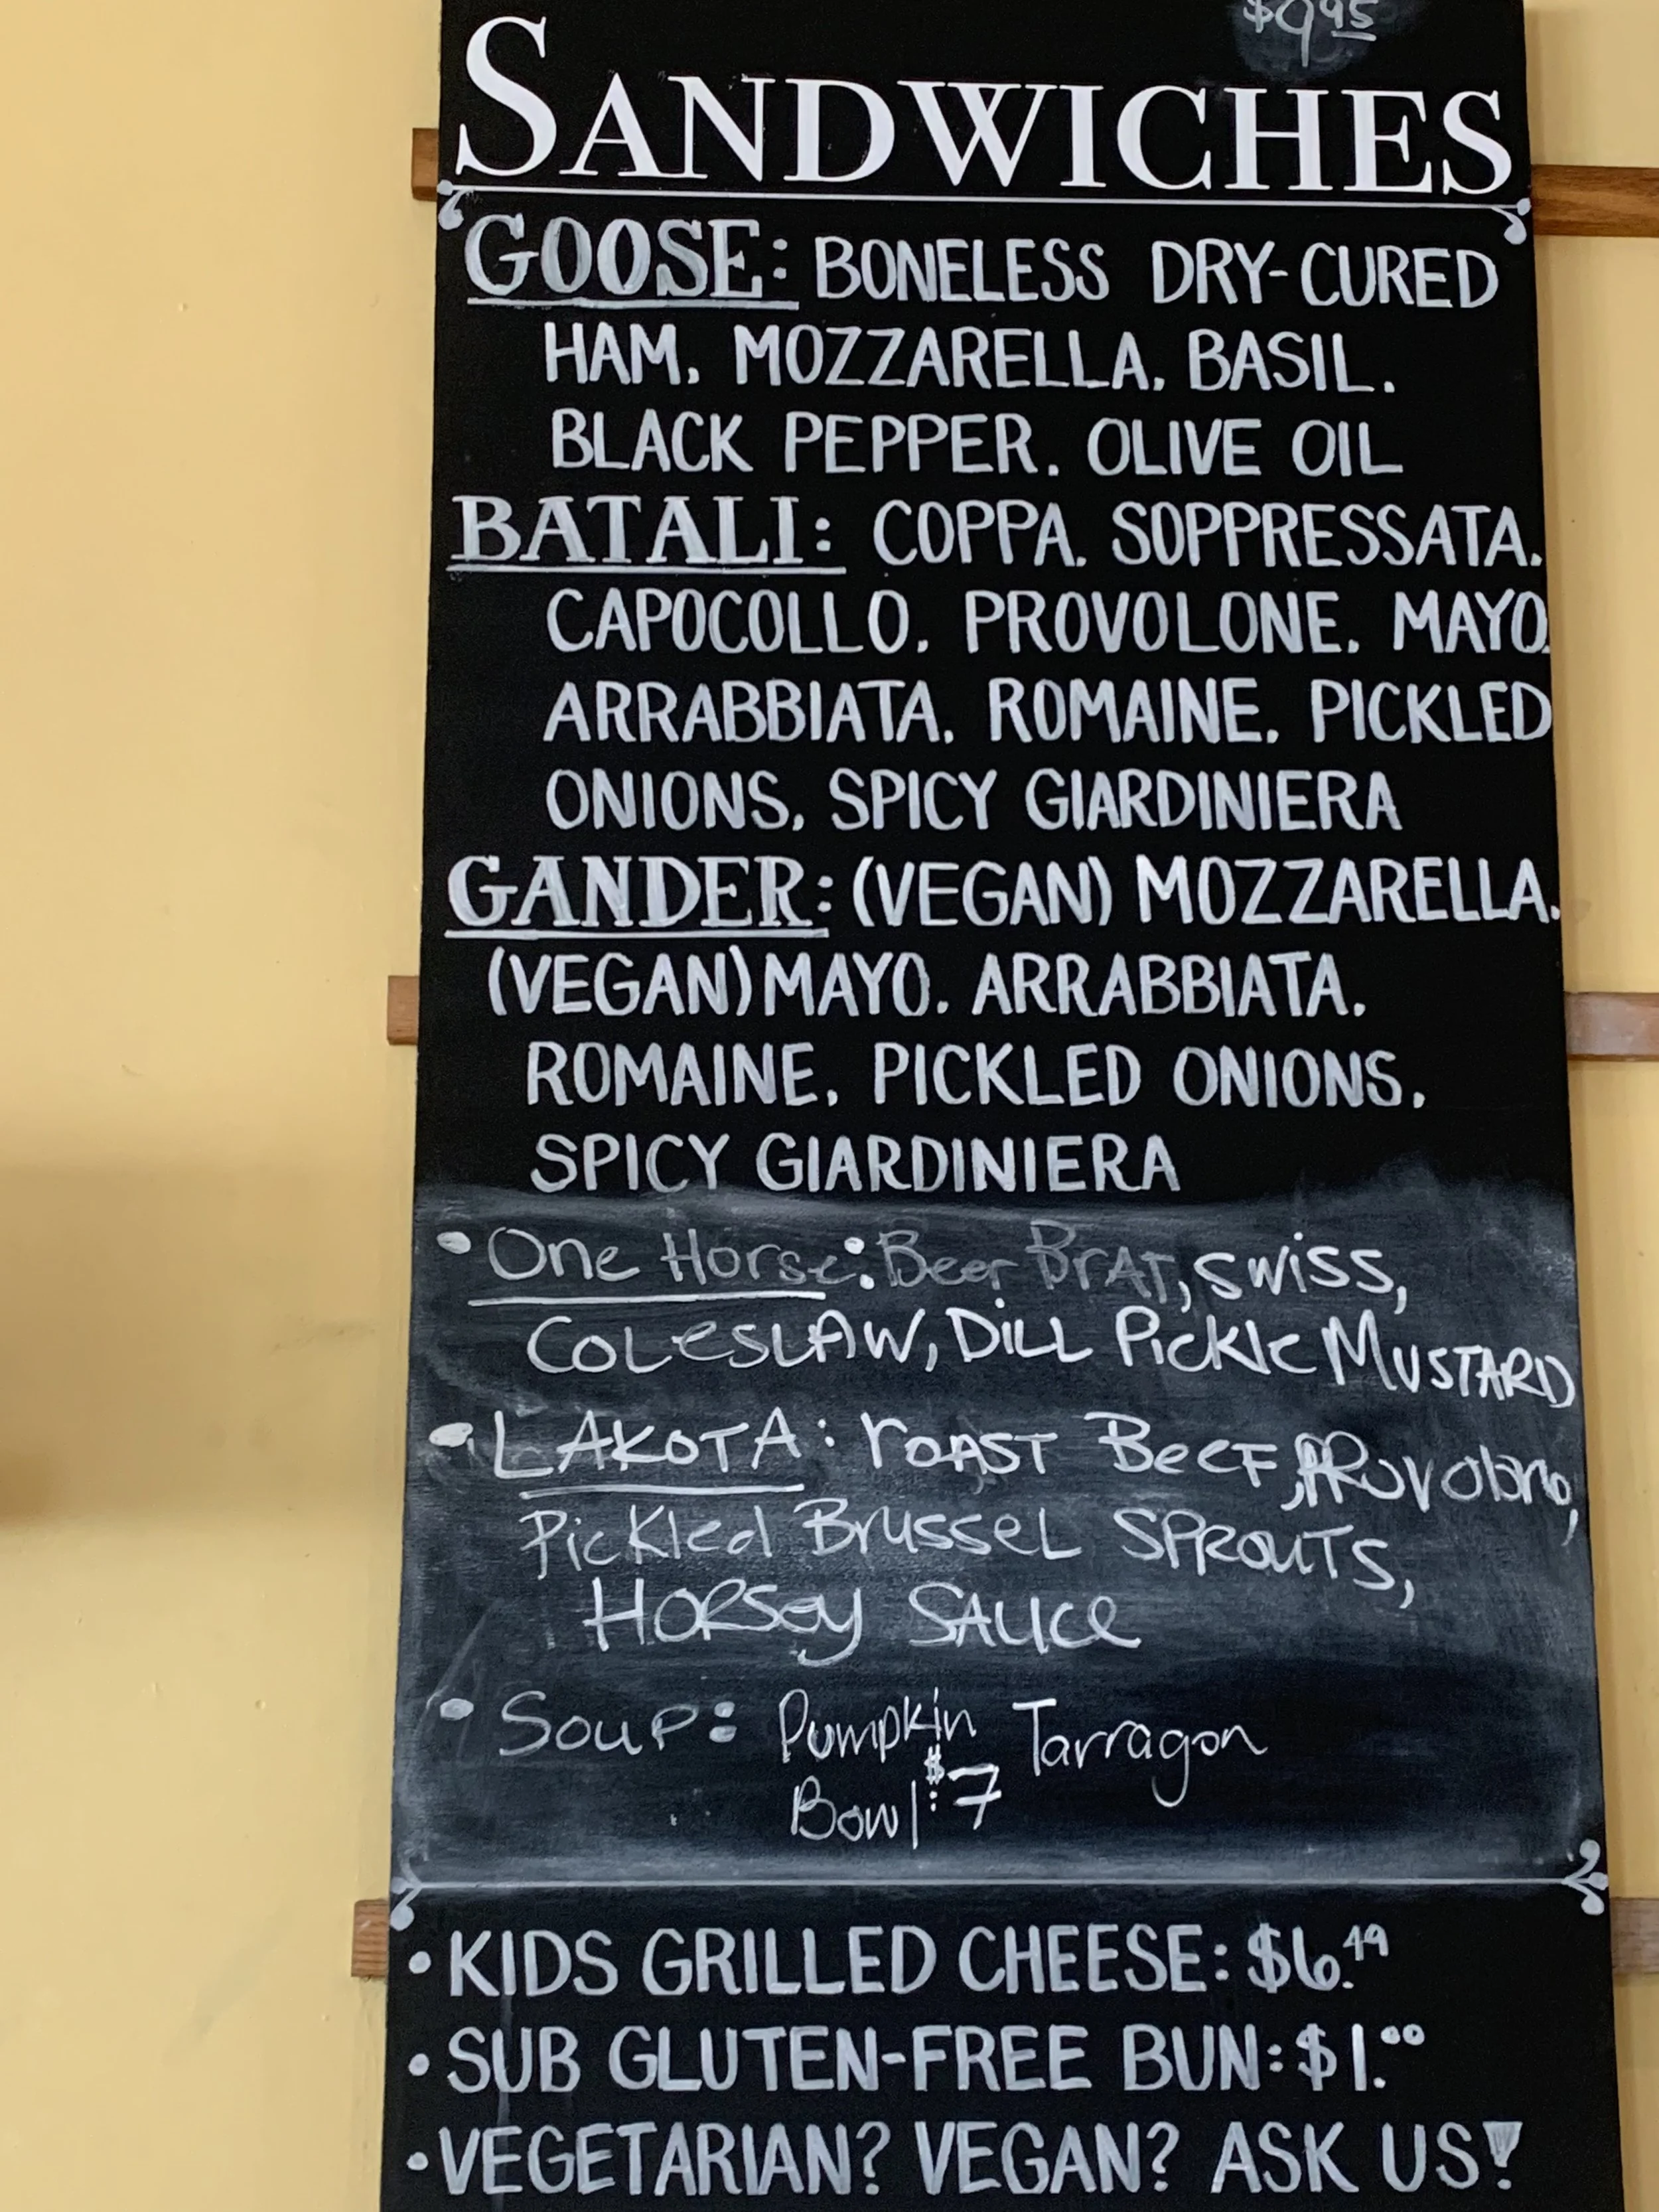 $9.95
SANDWICHES
GOOSE: BONELESS DRY-CURED
HAM, MOZZARELLA, BASIL,
BLACK PEPPER, OLIVE OIL
BATALI: COPPA, SOPPRESSATA,
CAPOCOLLO, PROVOLONE, MAYO,
ARRABBIATA, ROMAINE, PICKLED
ONIONS, SPICY GIARDINIERA
GANDER: (VEGAN) MOZZARELLA,
(VEGAN) MAYO, ARRABBIATA,
ROMAINE, PICKLED ONIONS,
SPICY GIARDINIERA
• One Horse: Beer BrAT, SWiSS,
COLeSLAW, DiLL Pickle MUSTARD
• LAKOTA: rOAST BeeF, PROVolone,
Pickled BrusseL SPROUTS,
HORSey SAUCe
• Soup: Pumpkin Tarragon
Bowl: $7
• KIDS GRILLED CHEESE: $6.49
• SUB GLUTEN-FREE BUN: $1.00
• VEGETARIAN? VEGAN? ASK US!